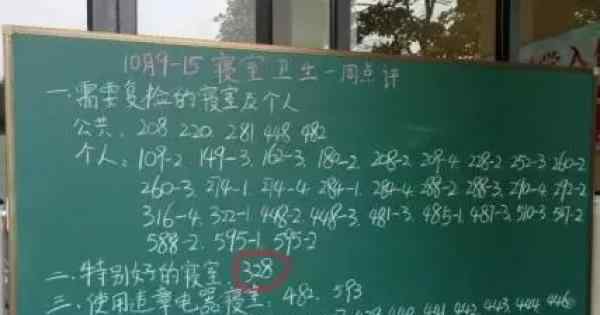 10月9-15寝室卫生一周点评
一、需要复检的寝室及个人
公共: 208 220. 281 448 482
个人: 109-2. 149-3. 162-3. 180-2. 208-2. 209-4. 228-2. 252-3. 260-2
260-3. 274-1. 274-4. 284-1. 284-4. 288-2. 288-3. 290-4. 292-2
316-4. 322-1. 448-2. 448-3. 481-3. 485-1. 487-3. 510-3. 517-2
588-2. 595-1. 595-2
二、特别好的寝室: 328
三、使用违章电器寝室: 482. 593
439 440 441 442. 443. 444. 446